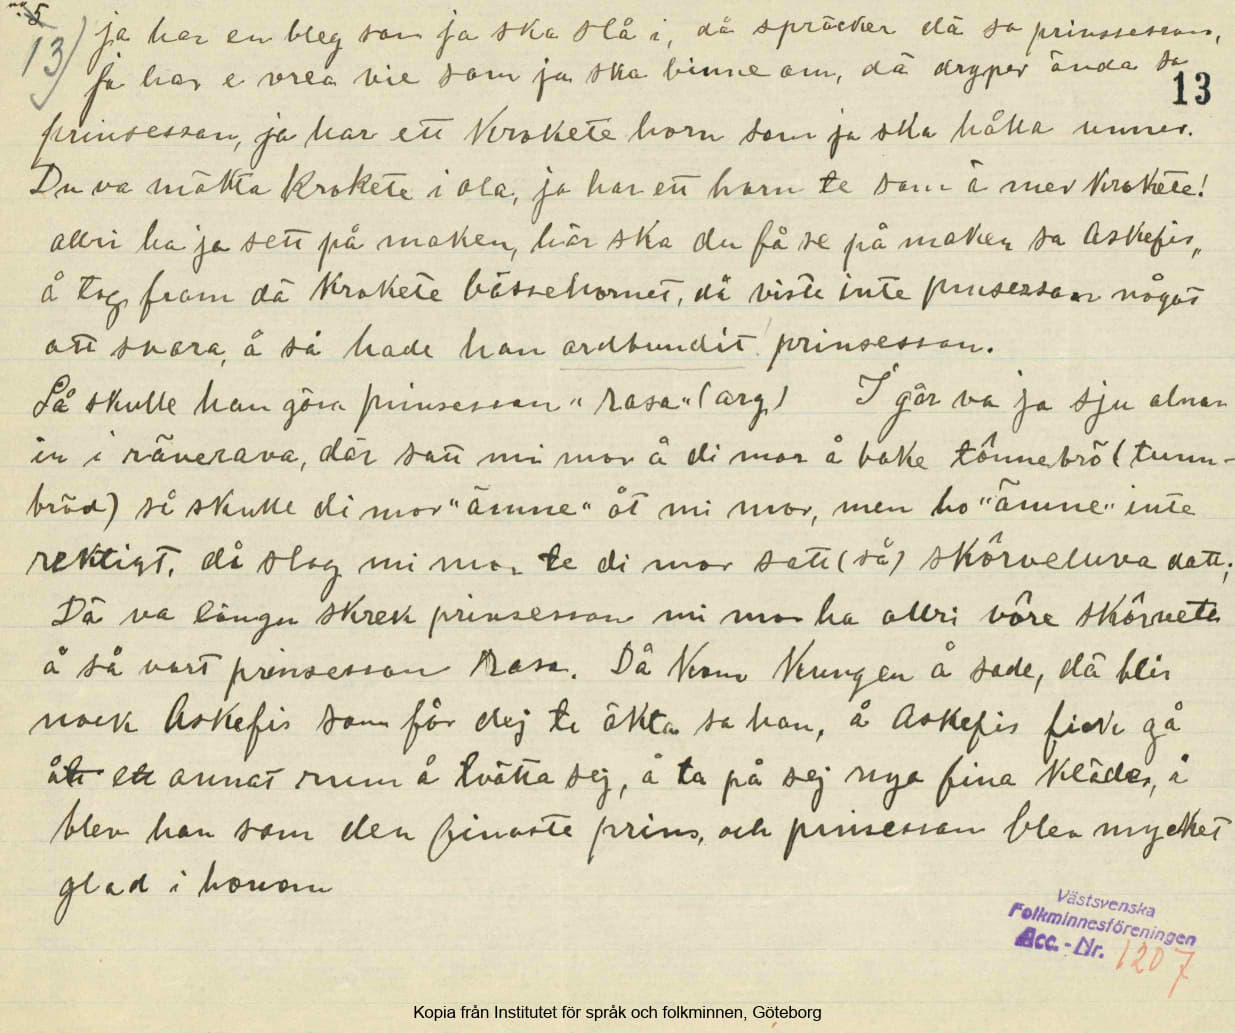 no 5
13) ja har en bleg som ja ska slå i, då spräcker dä sa prinssessan,
ja har e vrea vie som ja ska binne om, dä dryper ända sa
13
prinsessan, ja har ett krokete horn som ja ska hålla unner.
Du va mökta krokete i ola, ja har ett horn te som ä mer krokete!
allri ha ja sett på maken, här ska du få se på maken sa Askefis,
å tog fram dä krokete bässehornet, då viste inte prinsessan något
att svara, å så hade han ordbundit prinsessan.
Så skulle han göra prinsessan "rasa" (arg) I går va ja sju alnar
in i räverava, där satt mi mor å di mor å bake tônnebrö (tunn-
bröd) så skulle di mor "ämne" åt mi mor, men ho "ämne" inte
rektigt, då slog mi mor te di mor satt (så) skôrveluva datt;
Dä va lôngn skrek prinsessan mi mor ha allri vôre skôrvete
å så vart prinsessan rasa. Då kom kungen å sade, dä blir
nock Askefis som får dej te äkta sa han, å Askefis fick gå
åt ett annat rum å tvätta sej, å ta på sej nya fina kläder, å
blev han som den finaste prins, och prinsessan blev mycket
glad i honom
Västsvenska
Folkminnesföreningen
Acc.-Nr. 1207
Kopia från Institutet för språk och folkminnen, Göteborg